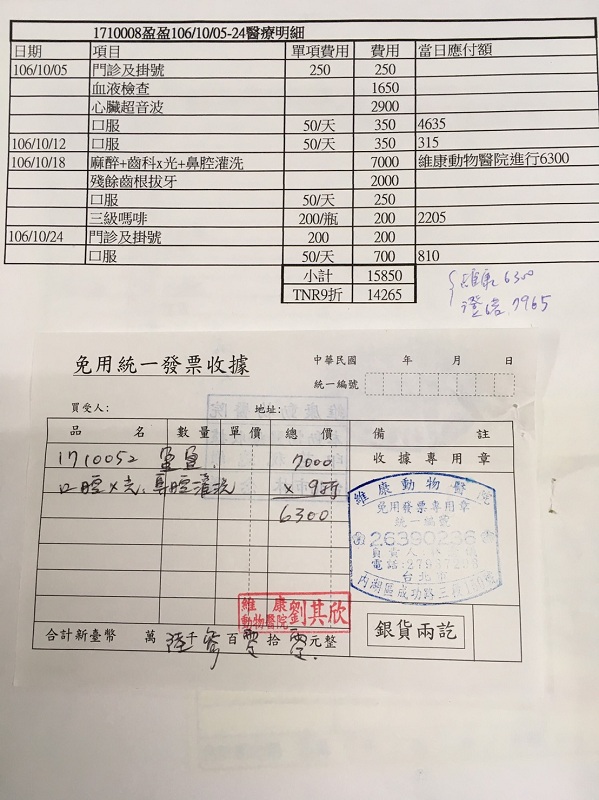 1710008盈盈106/10/05-24醫療明細
日期 項目 單項費用 費用 當日應付額
106/10/05 門診及掛號 250 250
血液檢查 1650
心臟超音波 2900
口服 50/天 350 4635
106/10/12 口服 50/天 350 315
106/10/18 麻醉+齒科x光+鼻腔灌洗 7000 維康動物醫院進行6300
殘餘齒根拔牙 2000
口服 50/天 250
三級嗎啡 200/瓶 200 2205
106/10/24 門診及掛號 200 200
口服 50/天 700 810
小計 15850
TNR9折 14265
維康 6300
7965
免用統一發票收據
中華民國 年 月 日
統一編號
買受人: 地址:
品名 數量 單價 總價 備註
1710052 7000 收據專用章
口腔x光、鼻腔灌洗 x 9折
6300
維康動物醫院
免用發票專用章
統一編號
26390236
台北市
維康動物醫院 劉其欣
合計新臺幣 萬 陸千參百零拾零元整
銀貨兩訖